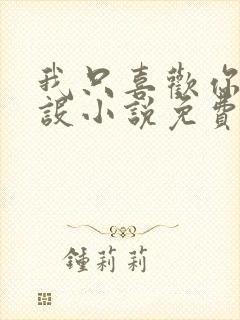 我只喜歡你
設小說免費
鍾莉莉